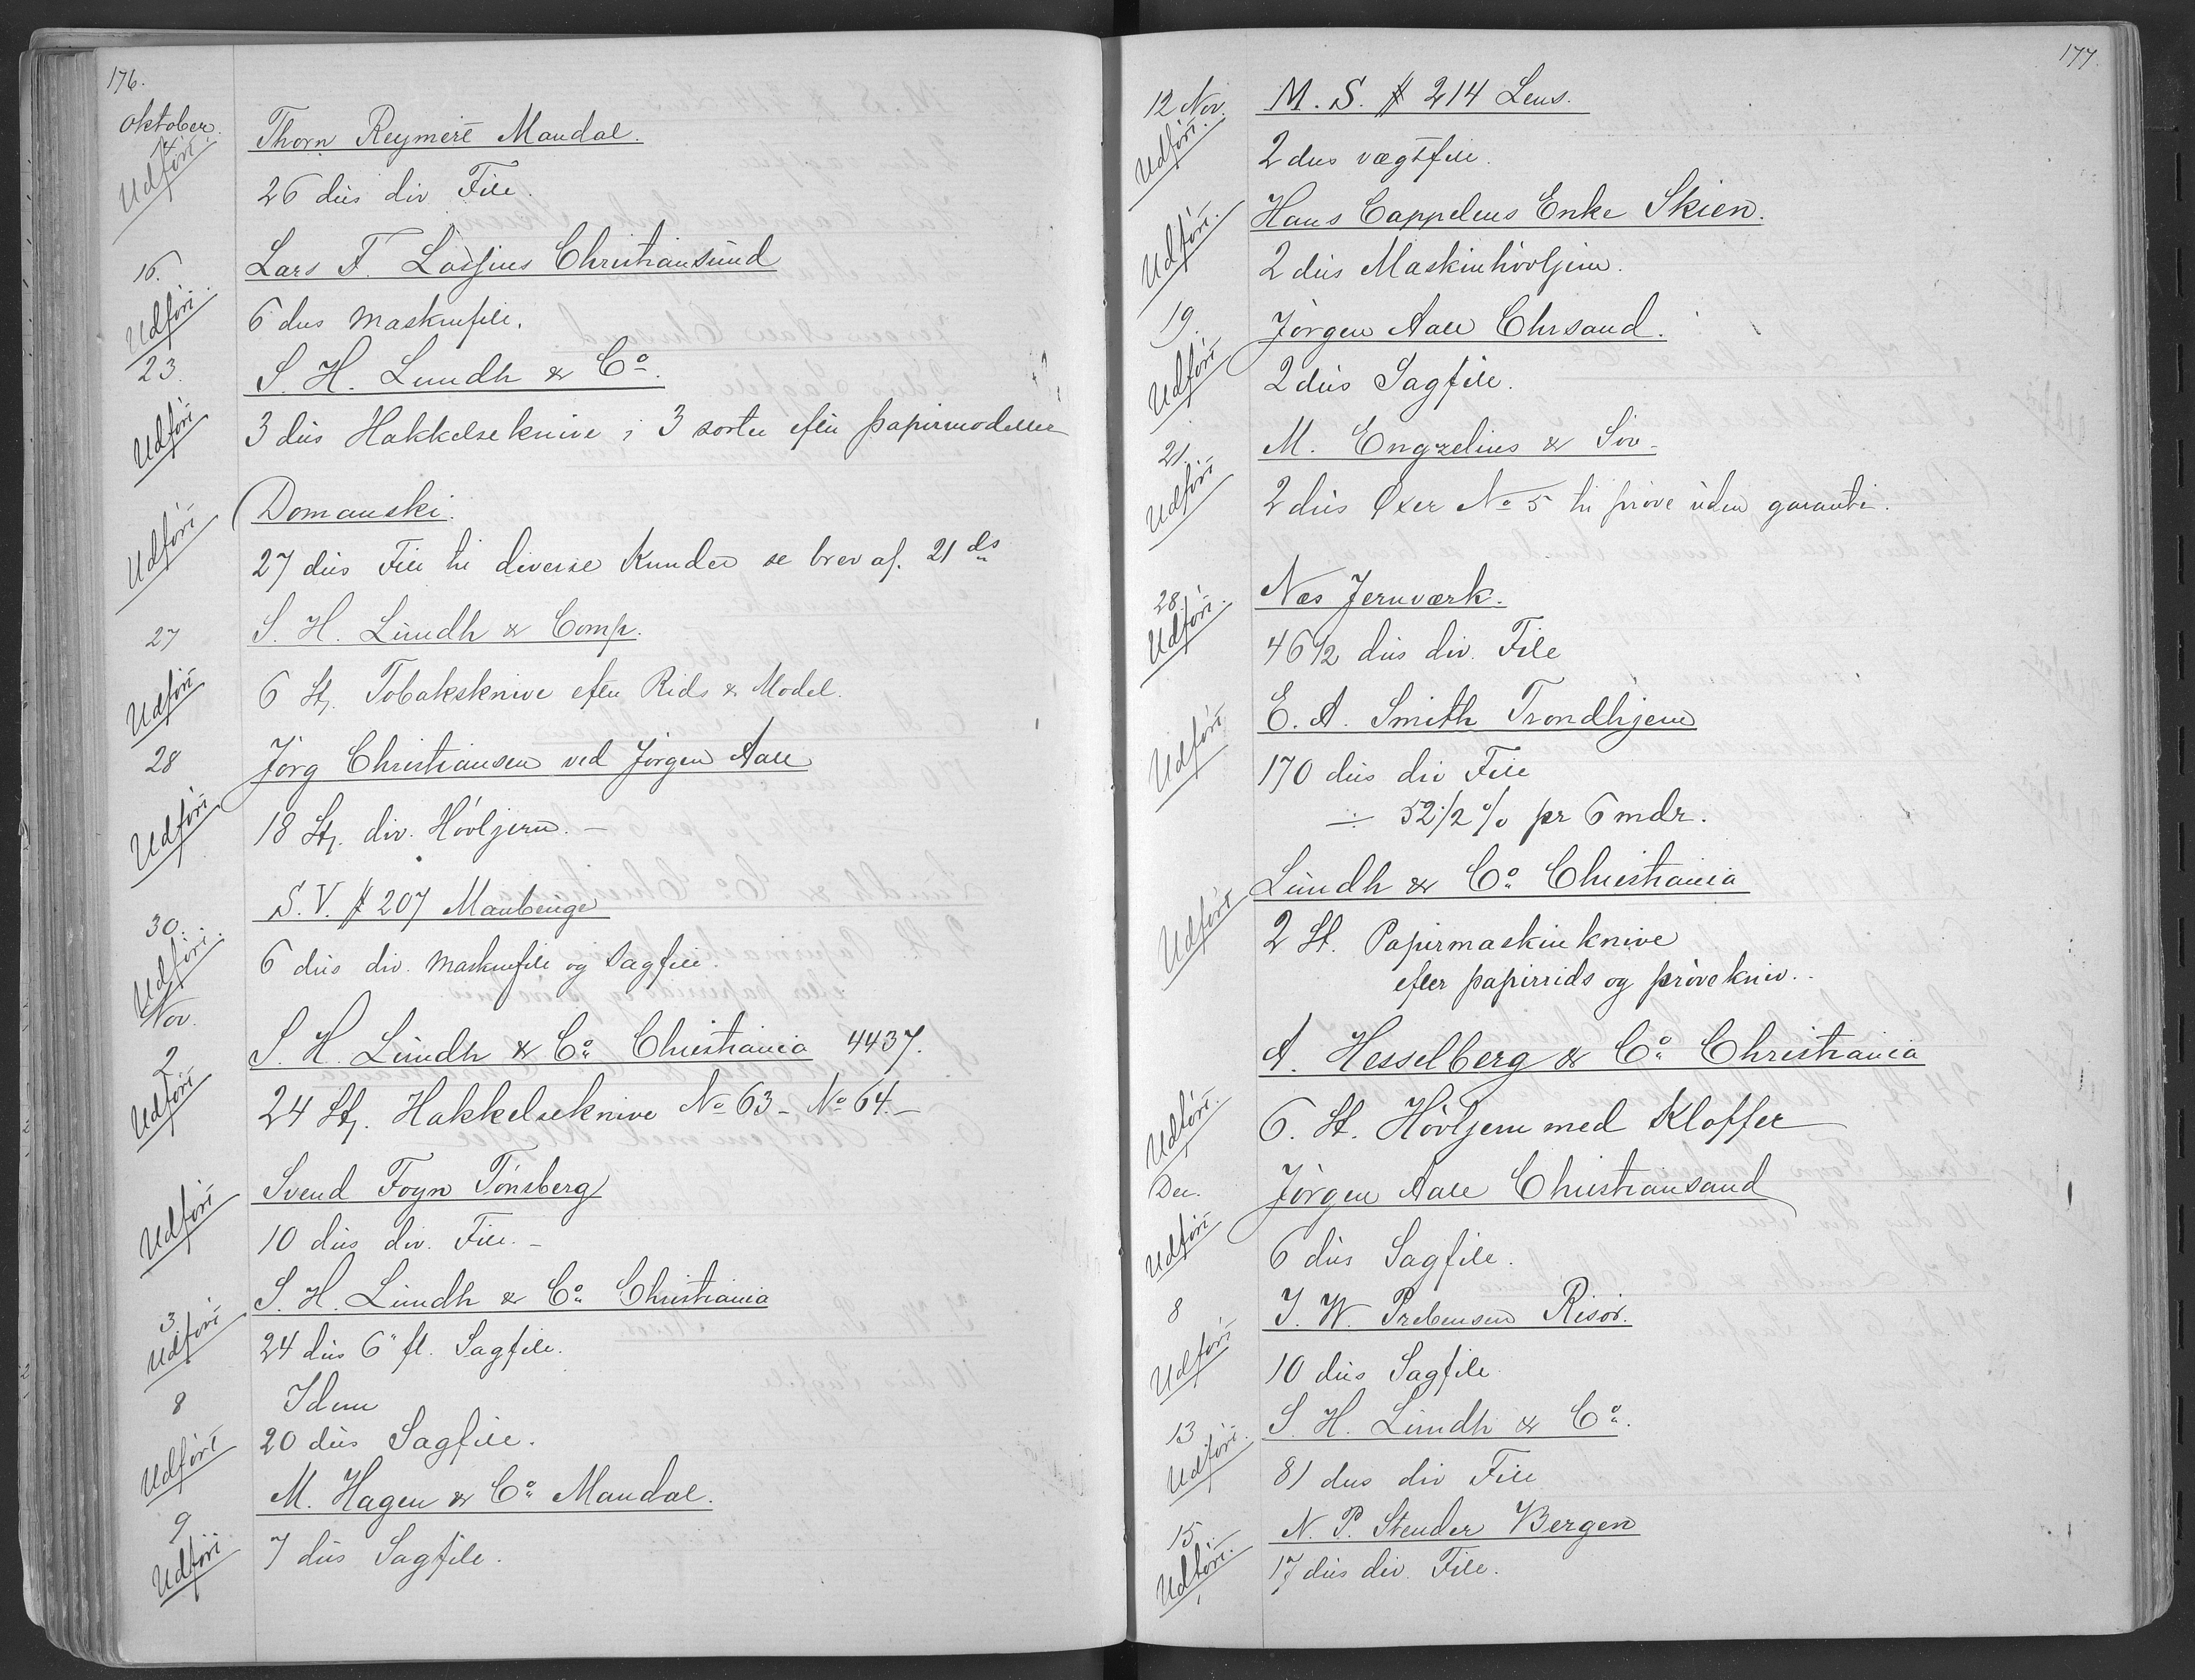 176.
Oktober.
Udført
Thorn Reymert Mandal.
26 dus div File.
16.
Udført.
Lars F. Lossius Christiansund
6 dus Maskinfile.
23.
Udført
S. H. Lundh & Co.
3 dus Hakkelseknive i 3 sorter efter papirmodeller
Udført
Domanski.
27 dus File til diverse Kunder se brev af. 21 ds
27
Udført
S. H. Lundh & Comp.
6 St. Tobaksknive efter Rids & Model.
28
Udført
Jørg Christiansen ved Jørgen Aall
18 St. div. Høvljern. –
30.
Udført.
S. V. # 207 Maubeuge
6 dus div. Maskinfile og Sagfile.
Nov.
2
Udført
S. H. Lundh & Co. Christiania 4437.
24 St. Hakkelseknive No 63 – No 64. –
Udført
Svend Foyn Tønsberg
10 dus div. File. –
3
Udført
S. H. Lundh & Co. Christiania
24 dus 6" fl. Sagfile.
8
Udført
Idem
20 dus Sagfile.
9
Udført
M. Hagen & Co. Mandal.
7 dus Sagfile.
177.
12 Nov.
Udført.
M. S. # 214 Lens.
2 dus vægtfile.
Udført.
Hans Cappelens Enke Skien.
2 dus Maskinhøvljern.
19.
Udført
Jørgen Aall Chrsand.
2 dus Sagfile.
21.
Udført
M. Engzelius & Søn
2 dus Øxer No 5 til prøve uden garanti.
28
Udført.
Næs Jernværk.
46 1/2 dus div. File
Udført
E. A. Smith Trondhjem
170 dus div File
÷ 52 1/2 % pr 6 mdr.
Udført
Lundh & Co. Christiania
2 St. Papirmaskinknive
efter papirrids og prøvekniv.
Udført.
A. Hesselberg & Co. Christiania
6. St. Høvljern med Kloffer
Dec.
Udført
Jørgen Aall Christiansand
6 dus Sagfile.
8
Udført
J. W. Prebensen Risør.
10 dus Sagfile
13
Udført.
S. H. Lundh & Co.
81 dus div File
15.
Udført.
N. P. Stender Bergen
17 dus div. File.